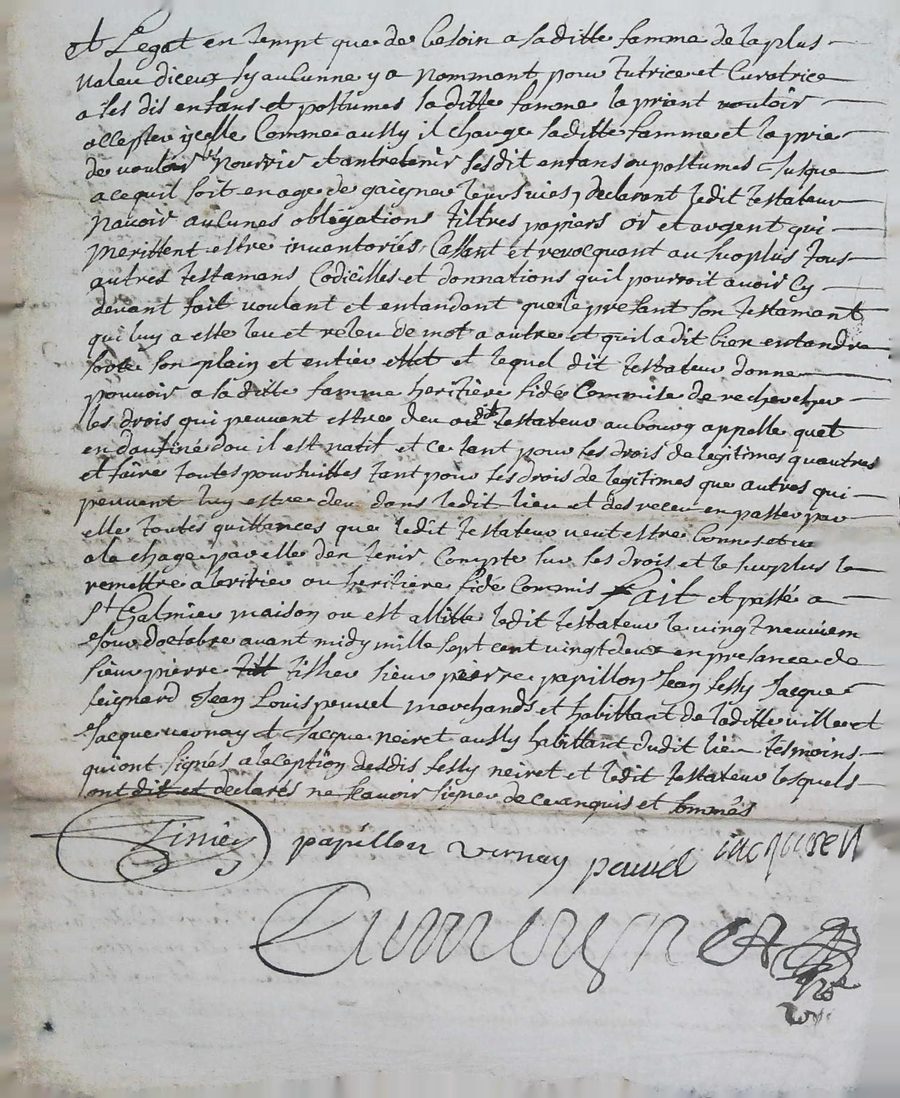 et Legat en tempt que de besoin a sa ditte famme de la plus
valeu diceux sy aucunne y a nommant pour tutrice et Curatrice
a ses dis enfans et postumes sa ditte famme la priant vouloir
accepter ycelle Comme aussy il charge saditte famme et la prie
de vouloir nourrir et antretenir ses dit enfans ou postumes Jusque
a ce quil soit en age de gaigner leurs vies, declarant ledit testateur
navoir aucunes obligations tiltres papiers or et argent qui
merittent estre invantoriés, Cassant et revocquant au surplus tous
autres testamans Codicilles et donnations quil pourroit avoir Cy
devant fait voulant et entandant que le presant son testamant
qui luy a esté leu et releu de mot a autre et quil a dit bien entandre
sorte son plain et entier effet et lequel dit testateur donne
pouvoir a sa ditte famme heritiere fidé Commise de rechercher
les drois qui peuvent estre deu au dit testateur au bourg appellé quet
en daufiné dou il est natif et ce tant pour ses drois de legitimes quautres
et faire toutes poursuittes tant pour ses drois de legitimes que autres qui
peuvent luy estre deu dans ledit lieu et des receu en passer par
elle toutes quittances que ledit testateur veut estre bonnes et
a la chage par elle den tenir Compte sur ses drois et le surplus le
remettre a leritier ou heritiere fidé Commis Fait et passé a
St Galmier maison ou est allitté ledit testateur le vingt neuviem
Jour doctobre avant midy mille sept cent vingt deux en presance de
sieur pierre tissier sieur pierre papillon Jean fessy Jacque
seignard Jean Louis peuvel marchands et habittant de laditte ville et
Jacque vernay et Jacque neiret aussy habittant dudit lieu tesmoins
qui ont signés a leception desdis fessy neiret et ledit testateur lesquels
ont dit et declarés ne scavoir signer de ce anquis et sommés
papillon vernay